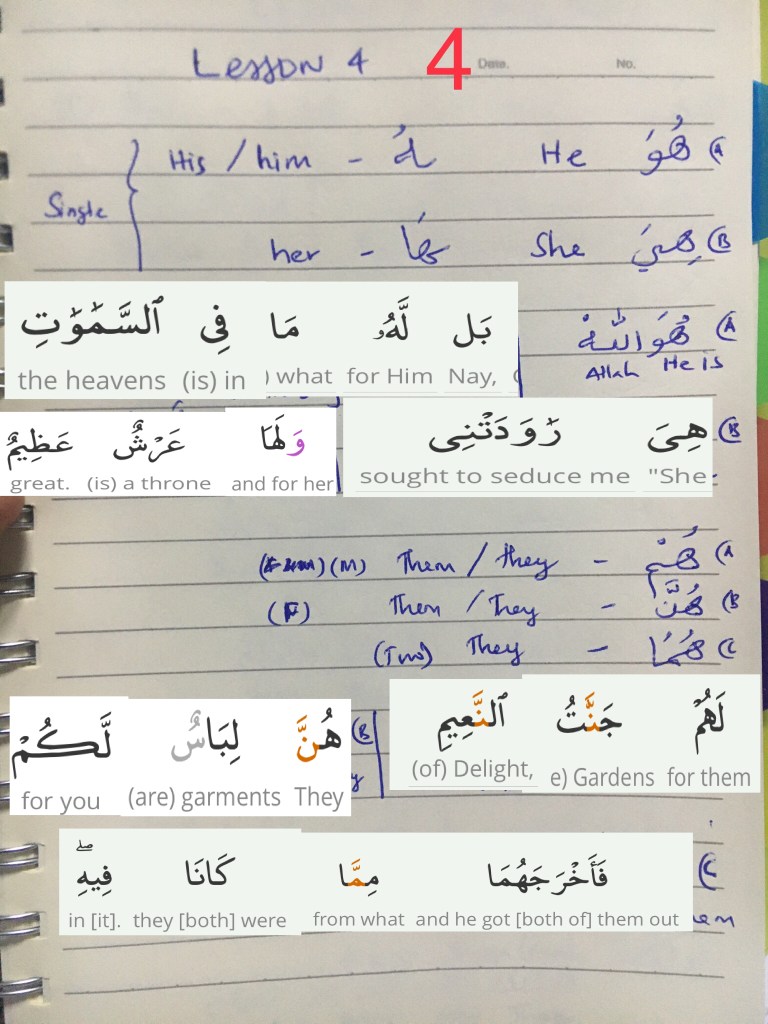 Lesson 4 4 Date. No.
His / him - ـهُ He هُوَ (A
Single
her - ـهَا She هِيَ (B
هُوَ اللّٰهُ (A
Allah He is
بَل لَّهُۥ مَا فِى ٱلسَّمَٰوَٰتِ
the heavens (is) in ) what for Him Nay,
هِىَ رَٰوَدَتْنِى (B
sought to seduce me "She
وَلَهَا عَرْشٌ عَظِيمٌ
great. (is) a throne and for her
(M) Them / they - هُمْ (A
(F) Them / They - هُنَّ (B
(Two) They - هُمَا (C
لَهُمْ جَنَّٰتُ ٱلنَّعِيمِ
(of) Delight, e) Gardens for them
هُنَّ لِبَاسٌ لَّكُمْ (B
for you (are) garments They
فَأَخْرَجَهُمَا مِمَّا كَانَا فِيهِ ۖ (C
in [it]. they [both] were from what and he got [both of] them out